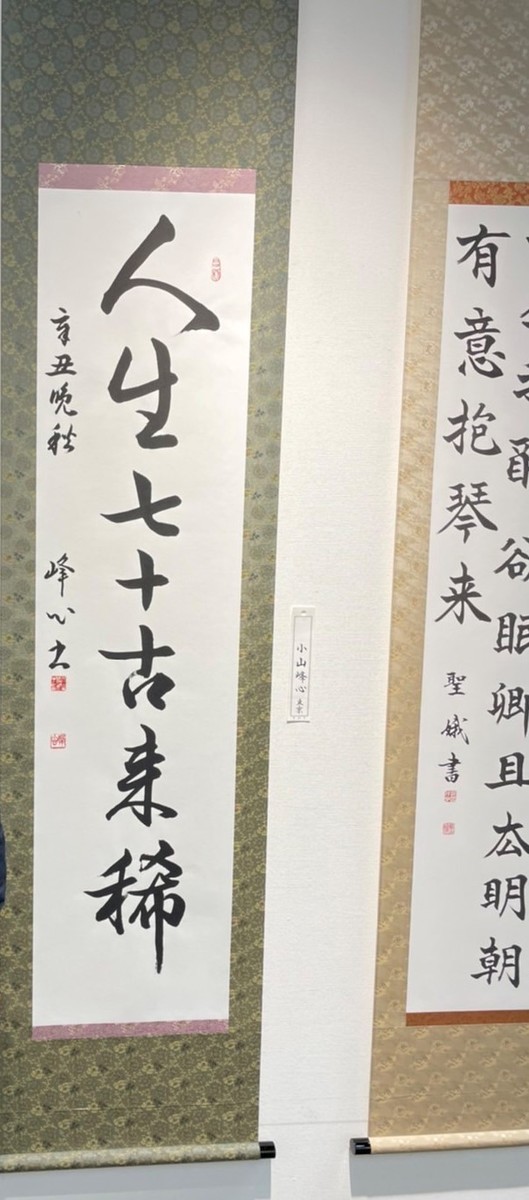 我酔欲眠卿且去明朝
有意抱琴来
聖娥書
小山峰心 東京
人生七十古来稀
辛丑晩秋
峰心